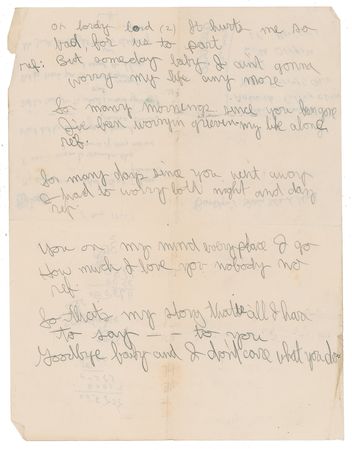 oh lordy lord (2) It hurts me so
bad for us to part
ref: But someday baby I aint gonna
worry my life any more
So many mornings since you ben gone
I've ben worryin grieven my life along
ref.
So many days since you went away
I had to worry both night and day
ref.
You on my mind every place I go
How much I love you nobody no
ref
So that's my story thats all I have
to say -- to you
Goodbye baby and I don't care what you do